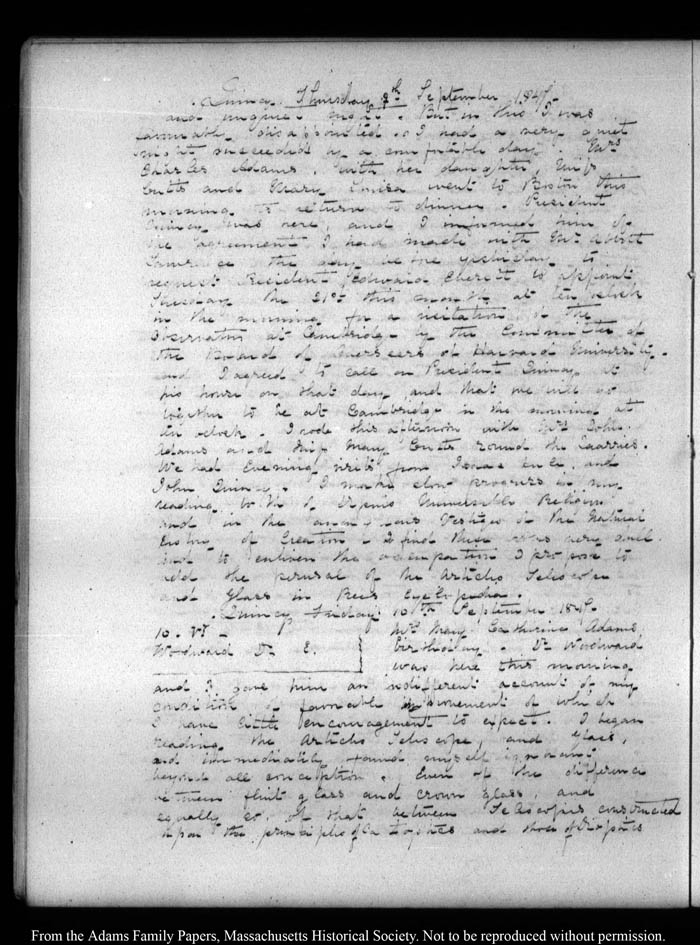 Quincy Thursday 9th September 1847.
and night. But in this I was
favourably disappointed, as I had a very quiet
night succeeded by a comfortable day. Mrs
Charles Adams, with her daughter, Miss
Cutts and Mary Louisa went to Boston this
morning to return to dinner. President
Quincy was here, and I informed him of
the agreement I had made with Mr Abbott
Lawrence the day before yesterday to
request President Edward Everett to appoint
Tuesday the 21st this month at ten oclock
in the morning for a visitation of the
Observatory at Cambridge by the Committee of
the Board of Overseers of Harvard University.
and I agreed to call on President Quincy at
his house on that day and that we will go
together to be at Cambridge in the morning at
ten oclock. I rode this afternoon with Mrs John
Adams and Miss Mary Cutts round the Quarries.
We had Evening visits from Isaac and
John Quincy. I make slow progress in my
reading both of Dupuis Universelle Religion
and in the Vestiges of the Natural
History of Creation. I find these very dull
and to enliven the occupation I propose to
add the perusal of the Articles Telescope
and Glass in Rees Cyclopedia.
Quincy Friday 10th September 1847.
10. VI
Woodward Dr E.
Mrs Mary Catherine Adams
birthday. Dr Woodward
was here this morning
and I gave him an indifferent account of my
condition of favorable improvement of which
I have little encouragement to expect. I began
reading the Articles Telescope, and Glass,
and immediately found myself ignorant
beyond all conception. Even of the difference
between flint glass and crown glass, and
equally so of that between Telescopes constructed
upon the principles of Catoptrics and those of Dioptrics
From the Adams Family Papers, Massachusetts Historical Society. Not to be reproduced without permission.